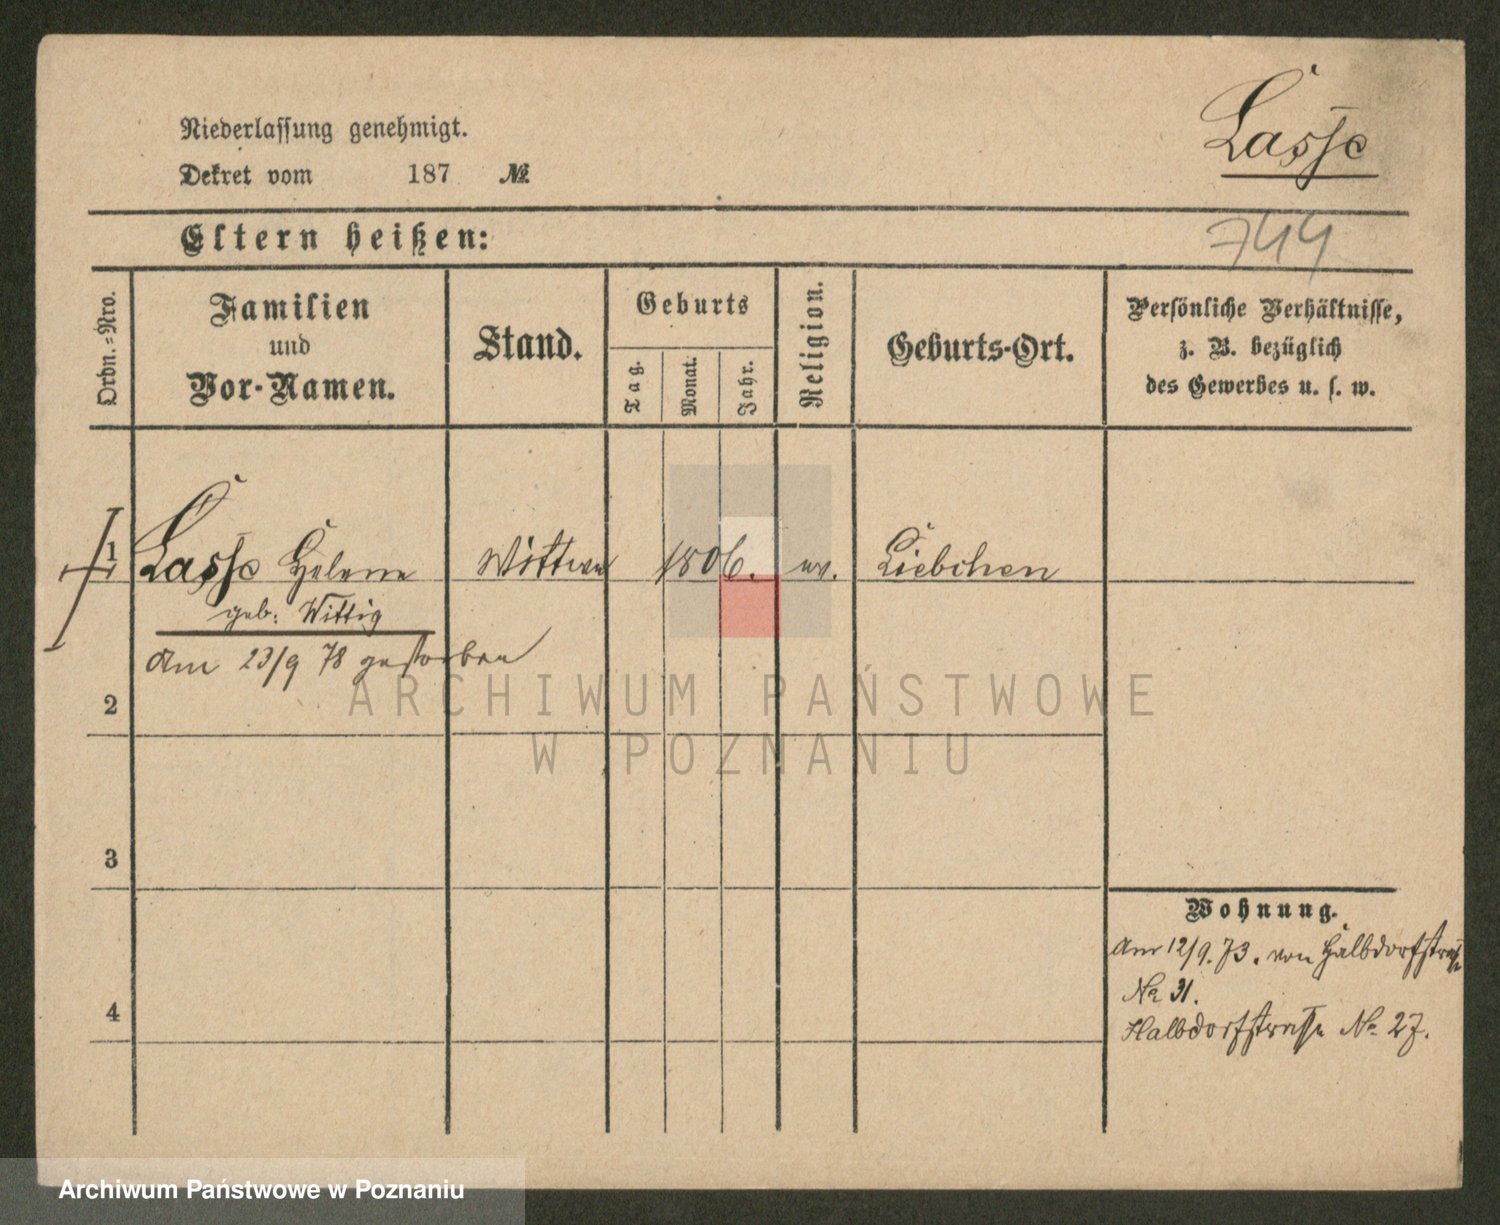 Lasse
Niederlassung genehmigt.
Dekret vom 187 №
744
Eltern heißen:
Ordn.-Nro.
Familien
und
Vor-Namen.
Stand.
Geburts
Tag.
Monat.
Jahr.
Religion.
Geburts-Ort.
Persönliche Verhältnisse,
z. B. bezüglich
des Gewerbes u. s. w.
1 Lasse Helene Wittwe 1806. ev. Liebchen
geb: Wittig
Am 23/9 78 gestorben
2
ARCHIWUM PAŃSTWOWE
W POZNANIU
3
Wohnung.
Am 12/9. 73. von Halbdorfstraße
No 31.
4
Halbdorfstraße No 27.
Archiwum Państwowe w Poznaniu